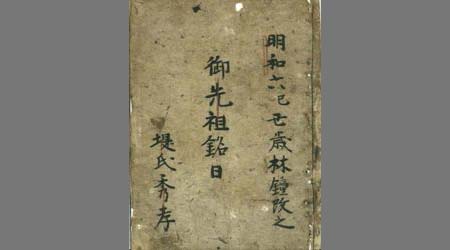 明和六巳丑歳林鐘改之
御先祖銘日
堤氏秀孝